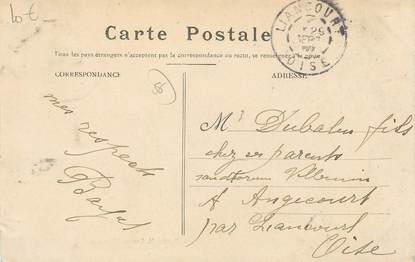 10 €
Carte Postale
Tous les pays étrangers n'acceptent pas la correspondance au recto, se renseigner
CORRESPONDANCE
ADRESSE
LIANCOURT
OISE
mes respects
Mr Dubalen fils
chez ses parents
sanatorium Villemin
A Angicourt
par Liancourt
Oise